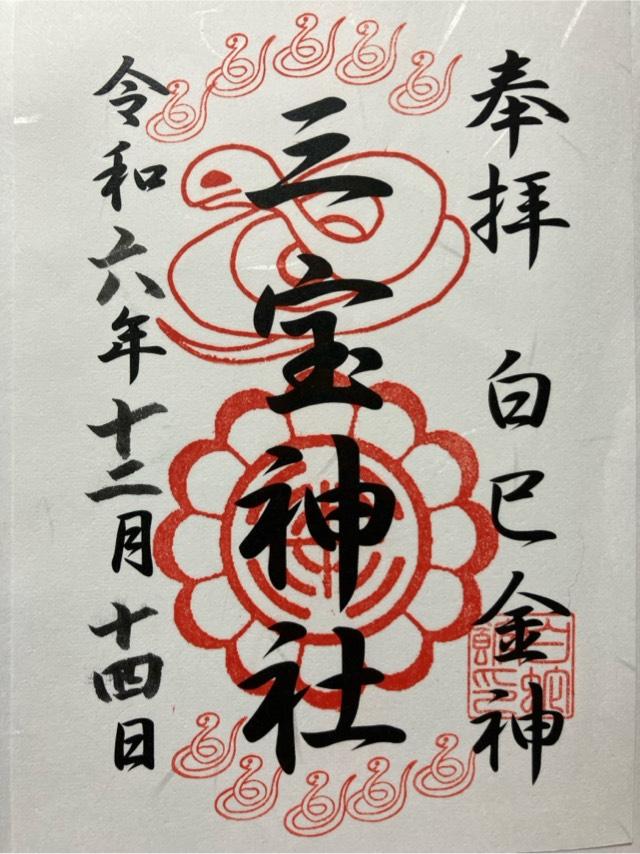 奉拝 白巳金神
三宝神社
令和六年十二月十四日